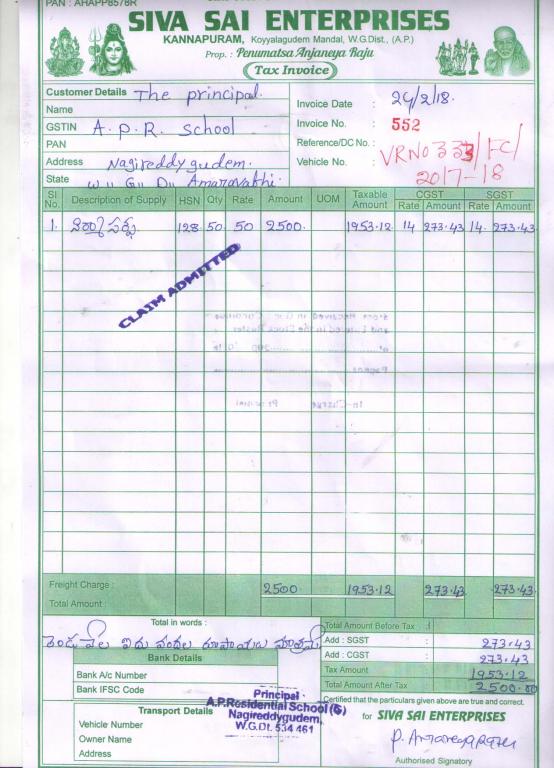 PAN : AHAPP8578R
SIVA SAI ENTERPRISES
KANNAPURAM, Koyyalagudem Mandal, W.G.Dist., (A.P.)
Prop. : Penumatsa Anjaneya Raju
Tax Invoice
Customer Details The principal.
Name
GSTIN A.P.R. school
PAN
Address Nagireddygudem.
State W.. G.. D.. Amaravathi
Invoice Date : 24/2/18.
Invoice No. : 552
Reference/DC No. : VRNO 333/FC/
Vehicle No. : 2017-18
Sl No. Description of Supply HSN Qty Rate Amount UOM Taxable Amount CGST Rate Amount SGST Rate Amount
1. 128 50 50 2500. 1953.12 14 273.43 14. 273.43
CLAIM ADMITTED
Freight Charge : 2500. 1953.12 273.43 273.43
Total Amount :
Total in words :
రెండు వేల ఐదు వందల రూపాయలు మాత్రమే
Bank Details
Bank A/c Number
Bank IFSC Code
Transport Details
Vehicle Number
Owner Name
Address
Principal
A.P.Residential School (G)
Nagireddygudem,
W.G.Dt. 534 461
Total Amount Before Tax :
Add : SGST : 273.43
Add : CGST : 273.43
Tax Amount : 1953.12
Total Amount After Tax : 2500.00
Certified that the particulars given above are true and correct.
for SIVA SAI ENTERPRISES
P. Anjaneya Raju
Authorised Signatory